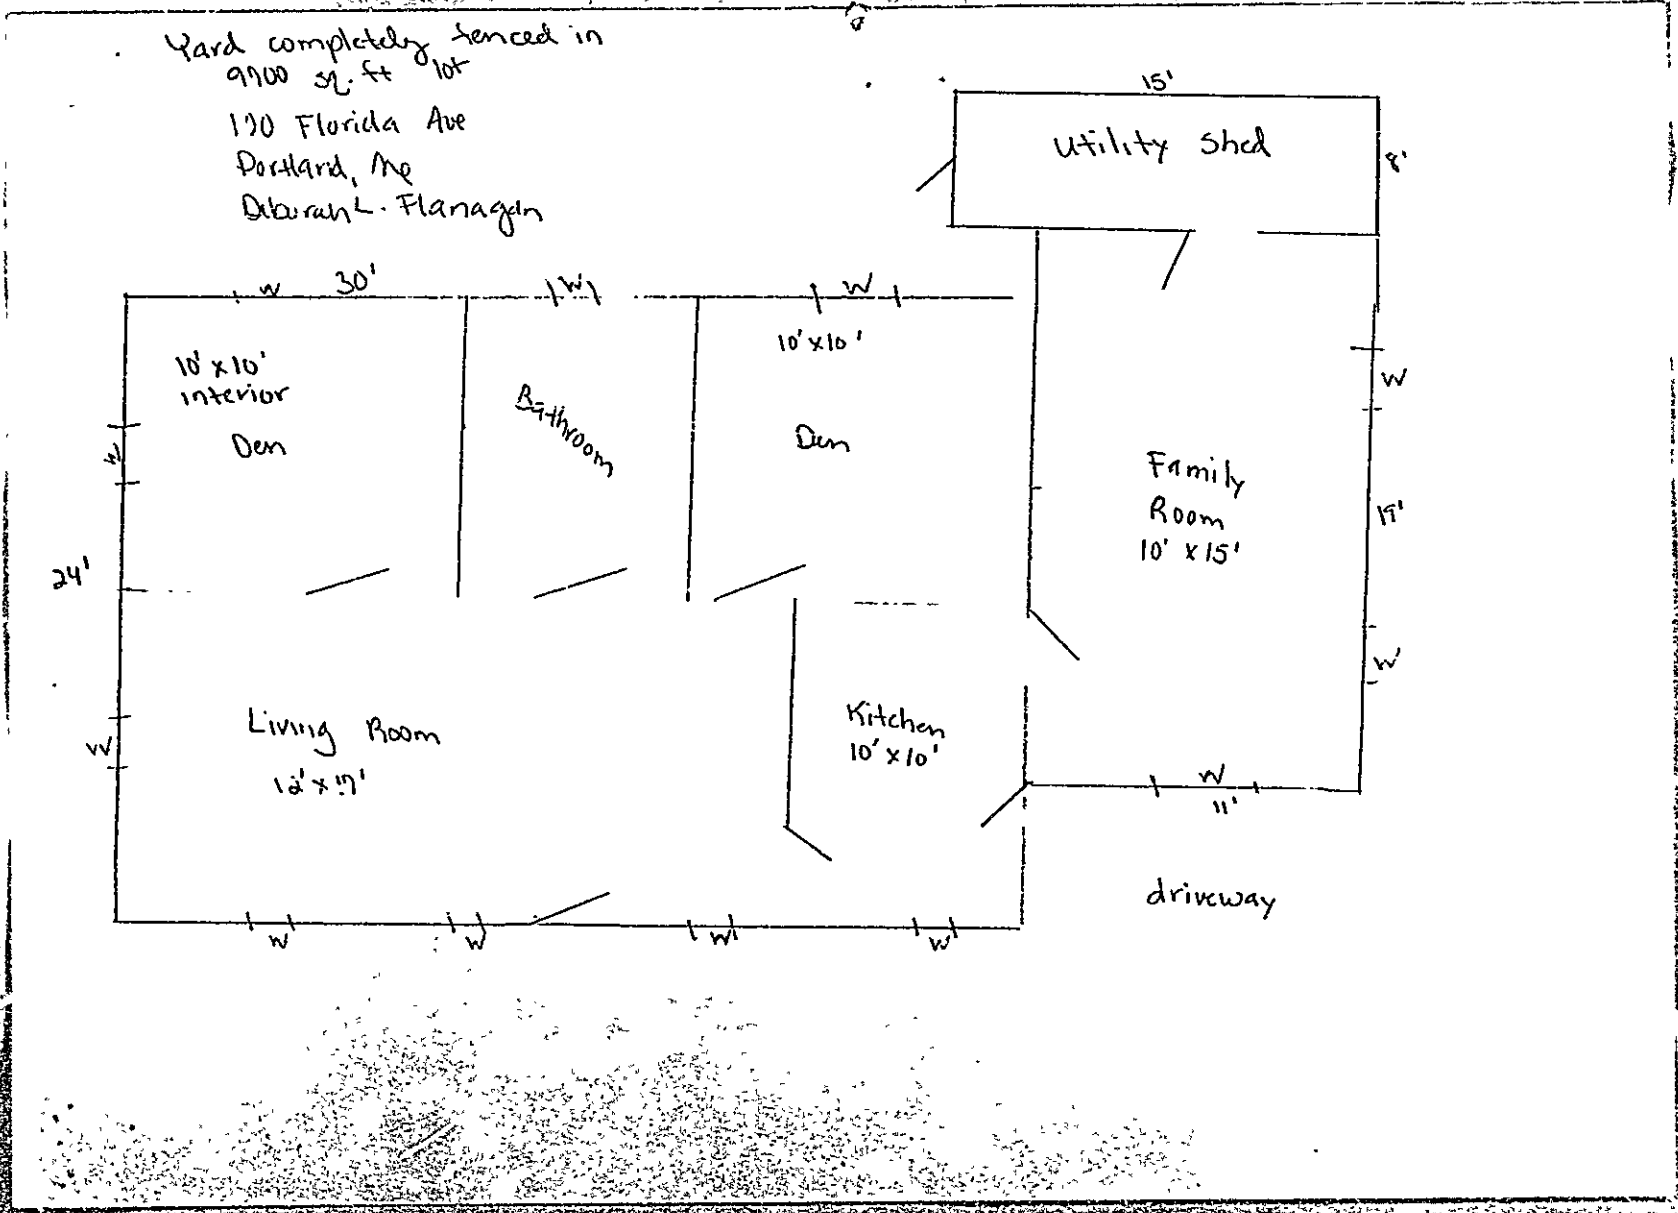 Yard completely fenced in
9700 sq. ft lot
170 Florida Ave
Portland, Me
Deborah L. Flanagan
15'
Utility Shed
8'
W 30' W W
10' x 10'
interior
Den
Bathroom
10' x 10'
Den
W
Family
Room
10' x 15'
19'
W
W
24'
Living Room
12' x 17'
W
Kitchen
10' x 10'
W
11'
driveway
W W W W